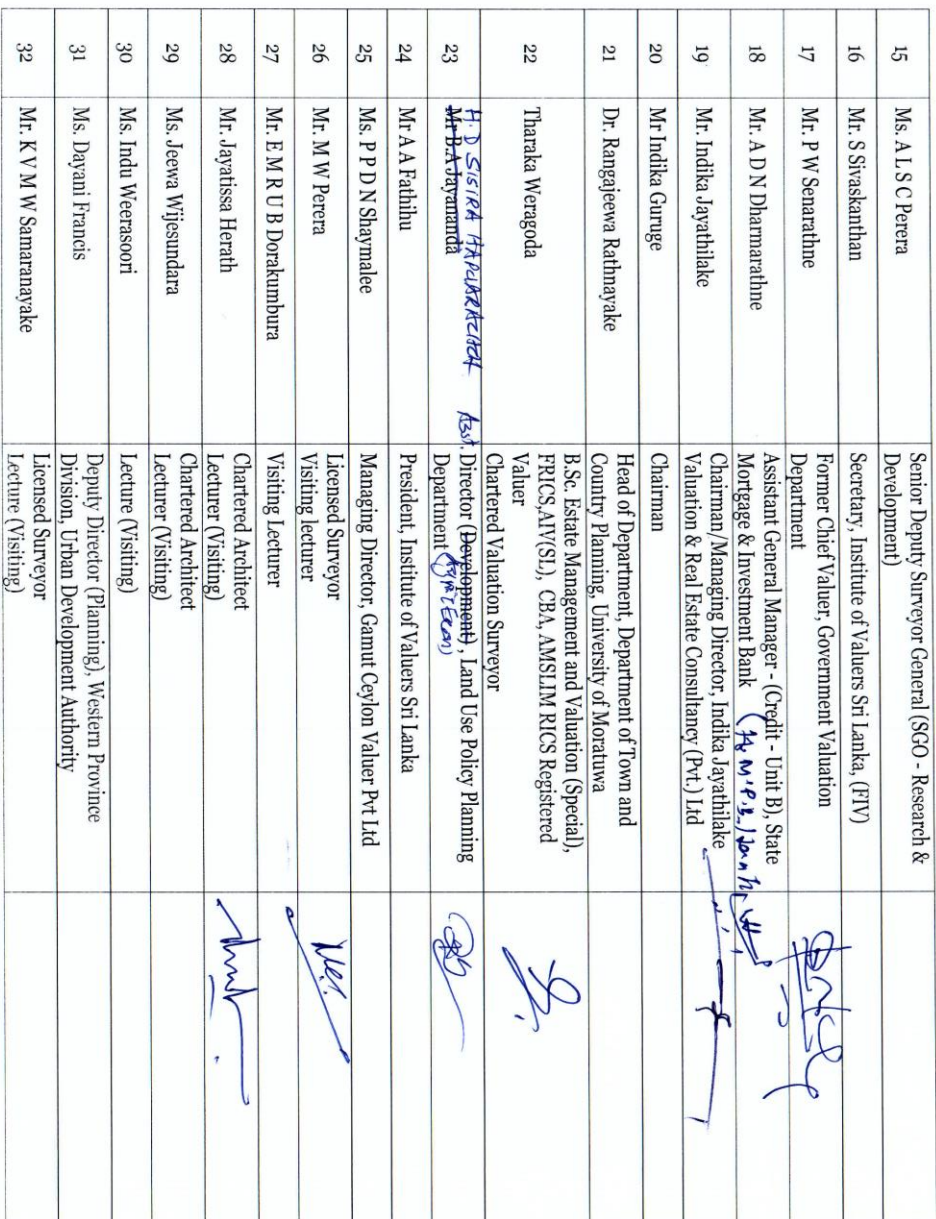 15 Ms. A L S C Perera Senior Deputy Surveyor General (SGO - Research &
Development)
16 Mr. S Sivaskanthan Secretary, Institute of Valuers Sri Lanka, (FIV)
17 Mr. P W Senarathne Former Chief Valuer, Government Valuation
Department
18 Mr. A D N Dharmarathne Assistant General Manager - (Credit - Unit B), State
Mortgage & Investment Bank
19 Mr. Indika Jayathilake Chairman/Managing Director, Indika Jayathilake
Valuation & Real Estate Consultancy (Pvt.) Ltd
20 Mr Indika Guruge Chairman
21 Dr. Rangajeewa Rathnayake Head of Department, Department of Town and
Country Planning, University of Moratuwa
22 Tharaka Weragoda B.Sc. Estate Management and Valuation (Special),
FRICS,AIV(SL), CBA, AMSLIM RICS Registered
Valuer
Chartered Valuation Surveyor
H. D SISIRA
23 Mr B.A Jayananda Asst. Director (Development) , Land Use Policy Planning
Department
24 Mr A A Fathihu President, Institute of Valuers Sri Lanka
25 Ms. P P D N Shaymalee Managing Director, Gamut Ceylon Valuer Pvt Ltd
26 Mr. M W Perera Licensed Surveyor
Visiting lecturer
27 Mr. E M R U B Dorakumbura Visiting Lecturer
28 Mr. Jayatissa Herath Chartered Architect
Lecturer (Visiting)
29 Ms. Jeewa Wijesundara Chartered Architect
Lecturer (Visiting)
30 Ms. Indu Weerasoori Lecture (Visiting)
31 Ms. Dayani Francis Deputy Director (Planning), Western Province
Division, Urban Development Authority
32 Mr. K V M W Samaranayake Licensed Surveyor
Lecture (Visiting)